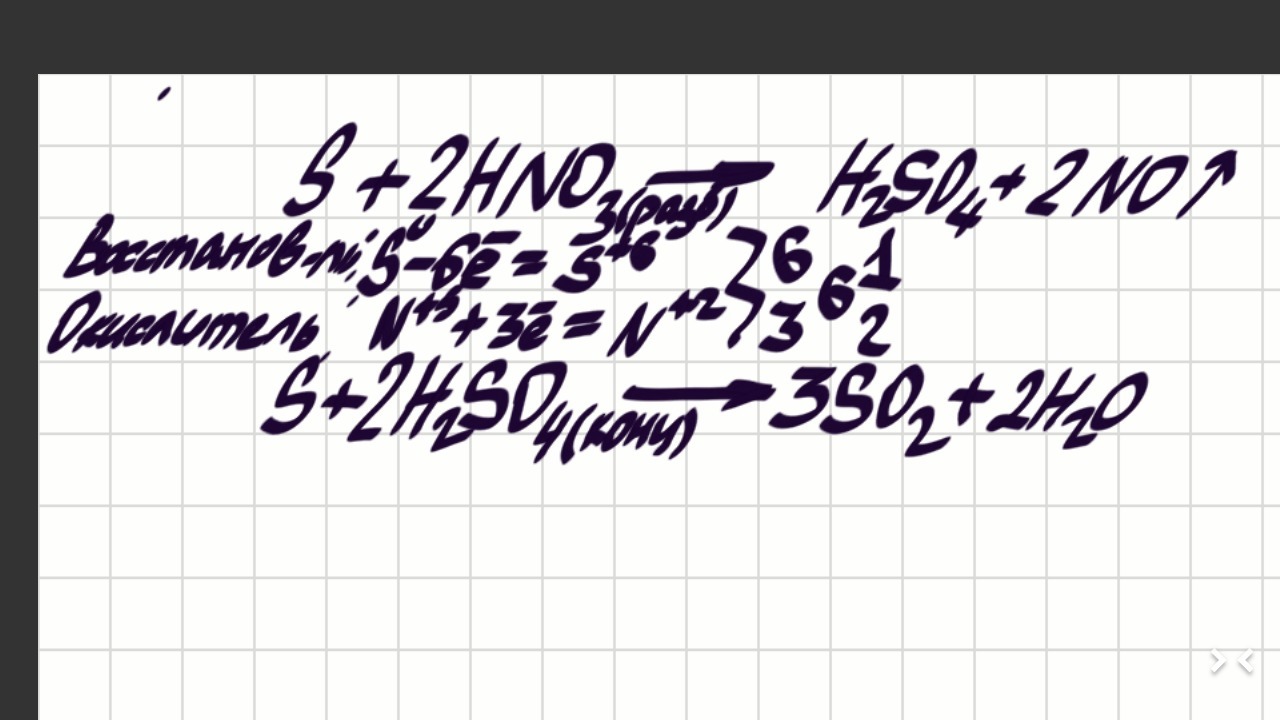 S + 2HNO₃(разб) → H₂SO₄ + 2NO↑
Восстанов-ль: S⁰ - 6ē = S⁺⁶ } 6 6 1
Окислитель N⁺⁵ + 3ē = N⁺² } 3 2
S + 2H₂SO₄(конц) → 3SO₂ + 2H₂O